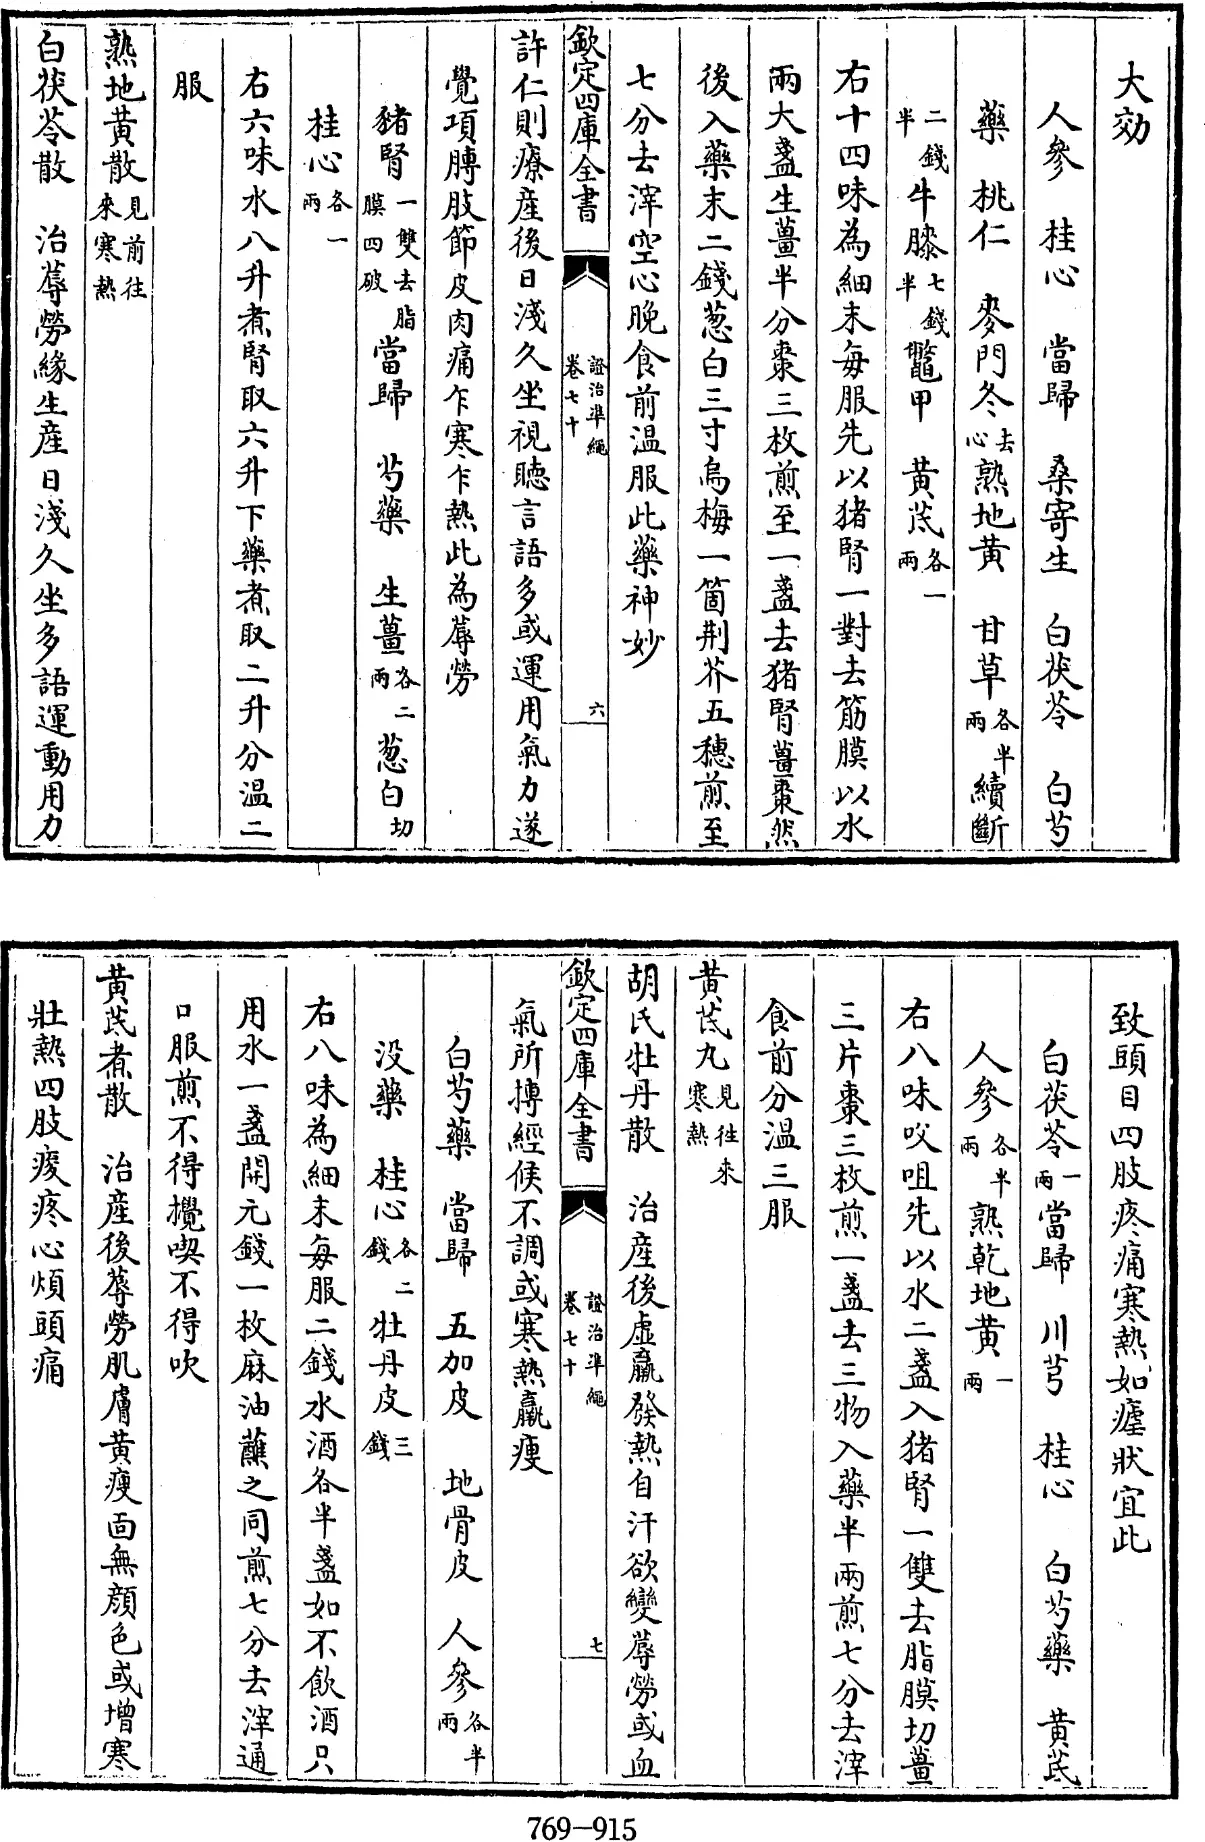 大効
人參　桂心　當歸　桑寄生　白茯苓　白芍
藥　桃仁　麥門冬去心熟地黄　甘草各半兩續斷
二錢半牛膝七錢半鼈甲　黄芪各一兩
右十四味為細末每服先以猪腎一對去筋膜以水
兩大盞生薑半分棗三枚煎至一盞去猪腎薑棗然
後入藥末二錢葱白三寸烏梅一箇荆芥五穗煎至
七分去滓空心晚食前温服此藥神妙
欽定四庫全書　證治準繩卷七十　六
許仁則療産後日淺久坐視聽言語多或運用氣力遂
覺項膊肢節皮肉痛乍寒乍熱此為蓐勞
豬腎一雙去脂膜四破當歸　芍藥　生薑各二兩葱白切
桂心各一兩
右六味水八升煮腎取六升下藥煮取二升分温二
服
熟地黄散見前往來寒熱
白茯苓散　治蓐勞緣生産日淺久坐多語運動用力
致頭目四肢疼痛寒熱如瘧狀宜此
白茯苓一兩當歸　川芎　桂心　白芍藥　黄芪
人參各半兩熟乾地黄一兩
右八味㕮咀先以水二盞入猪腎一雙去脂膜切薑
三片棗三枚煎一盞去三物入藥半兩煎七分去滓
食前分温三服
黄芪丸見往來寒熱
胡氏牡丹散　治産後虚羸發熱自汗欲變蓐勞或血
欽定四庫全書　證治準繩卷七十　七
氣所搏經候不調或寒熱羸瘦
白芍藥　當歸　五加皮　地骨皮　人參各半兩
没藥　桂心各二錢牡丹皮三錢
右八味為細末每服二錢水酒各半盞如不飲酒只
用水一盞開元錢一枚麻油蘸之同煎七分去滓通
口服煎不得攪喫不得吹
黄芪煮散　治産後蓐勞肌膚黄瘦面無顔色或增寒
壯熱四肢痠疼心煩頭痛
769—915